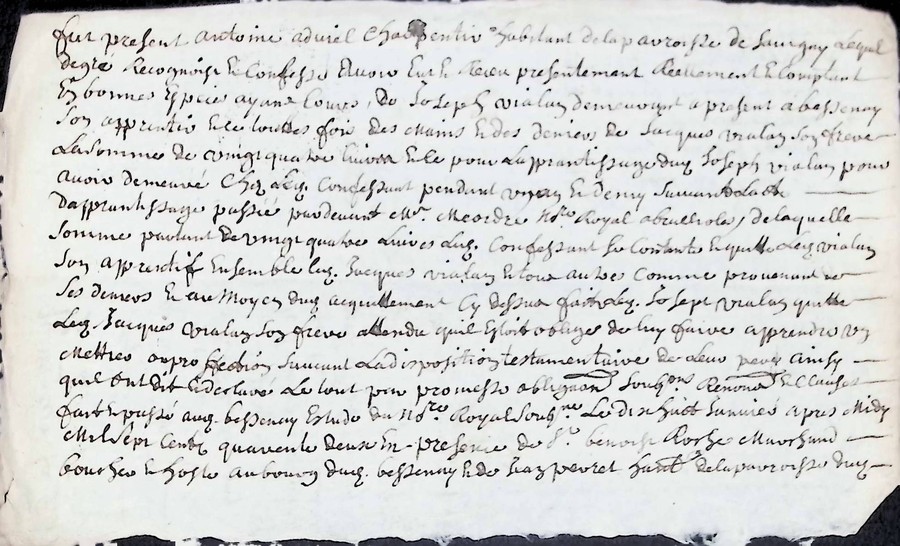 fut present antoine aduiel Charpentier habitant de la parroisse de Sauigny Lequel
degré Recognoist & Confesse Auoir Eut & Receu presentement Reellement & Comptant
En bonnes Especes ayant Cours, de Joseph vialan demeurant a present a bessenay
Son apprentis & ce touttes fois des Mains & des deniers de Jacques vialan Son frere
La Somme de vingt quatre Liures & ce pour L'apprantissage duq. Joseph vialan pour
auoir demeuré Chez Leq. Confessant pendant vn an & Demy Suiuant Lacte
Dapprantissage passé pardeuant Mr. No.re Royal de Laquelle
Somme partant de vingt quatre Liures Leq. Confessant Se Contante & quitte Leq vialan
Son aprentif Ensemble Leq. Jacques vialan & tous autres Comme prouenant de
Ses deniers & au Moyen duq acquittement Cy dessus fait Leq. Josept vialan quitte
Leq. Jacques vialan Son frere attendu quil Estoit oblige de luy faire apprendre vn
Mettier ou profession Suiuant La disposition testamentaire de Leur pere ainsy
quil ont dit & declaré Le tout par promesse obligaon Soub.ons Renonon & Clauses
fait & passé auq. bessenay Estude du No.re Royal Soub.ne Le dixhuict Januier apres Midy
Mil Sept Cents quarente deux En presence de Sr. benoist Roche Marchand
boucher & hoste au bourg duq. bessenay & de Jean peyret habt. de la parroisse duq